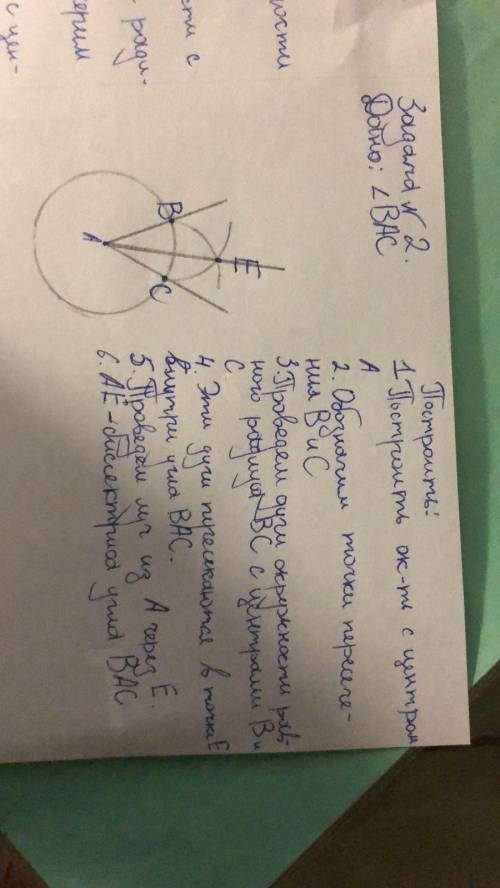 ности
сти с
ради-
ерим
с цен-
Задача № 2.
Дано: ∠BAC
B
A
C
E
Построить:
1. Построить ок-ть с центром
A
2. Обозначим точки пересече-
ния B и C
3. Проведем дуги окружности рав-
ного радиуса BC с центрами B и
C.
4. Эти дуги пересекаются в точке E
внутри угла BAC.
5. Проведем луч из A через E.
6. AE - биссектриса угла BAC